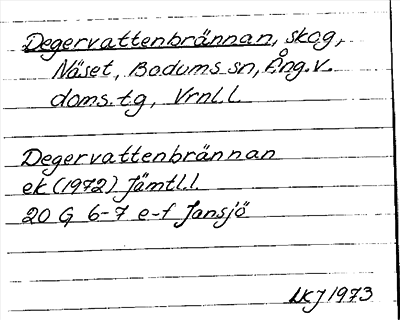 Degervattenbrännan, skog,
Näset, Bodums sn, Ång. v.
doms. t.g, Vrnl. l.
Degervattenbrännan
ek (1972) Jämtl. l.
20 G 6-7 e-f Jansjö
LKJ 1973